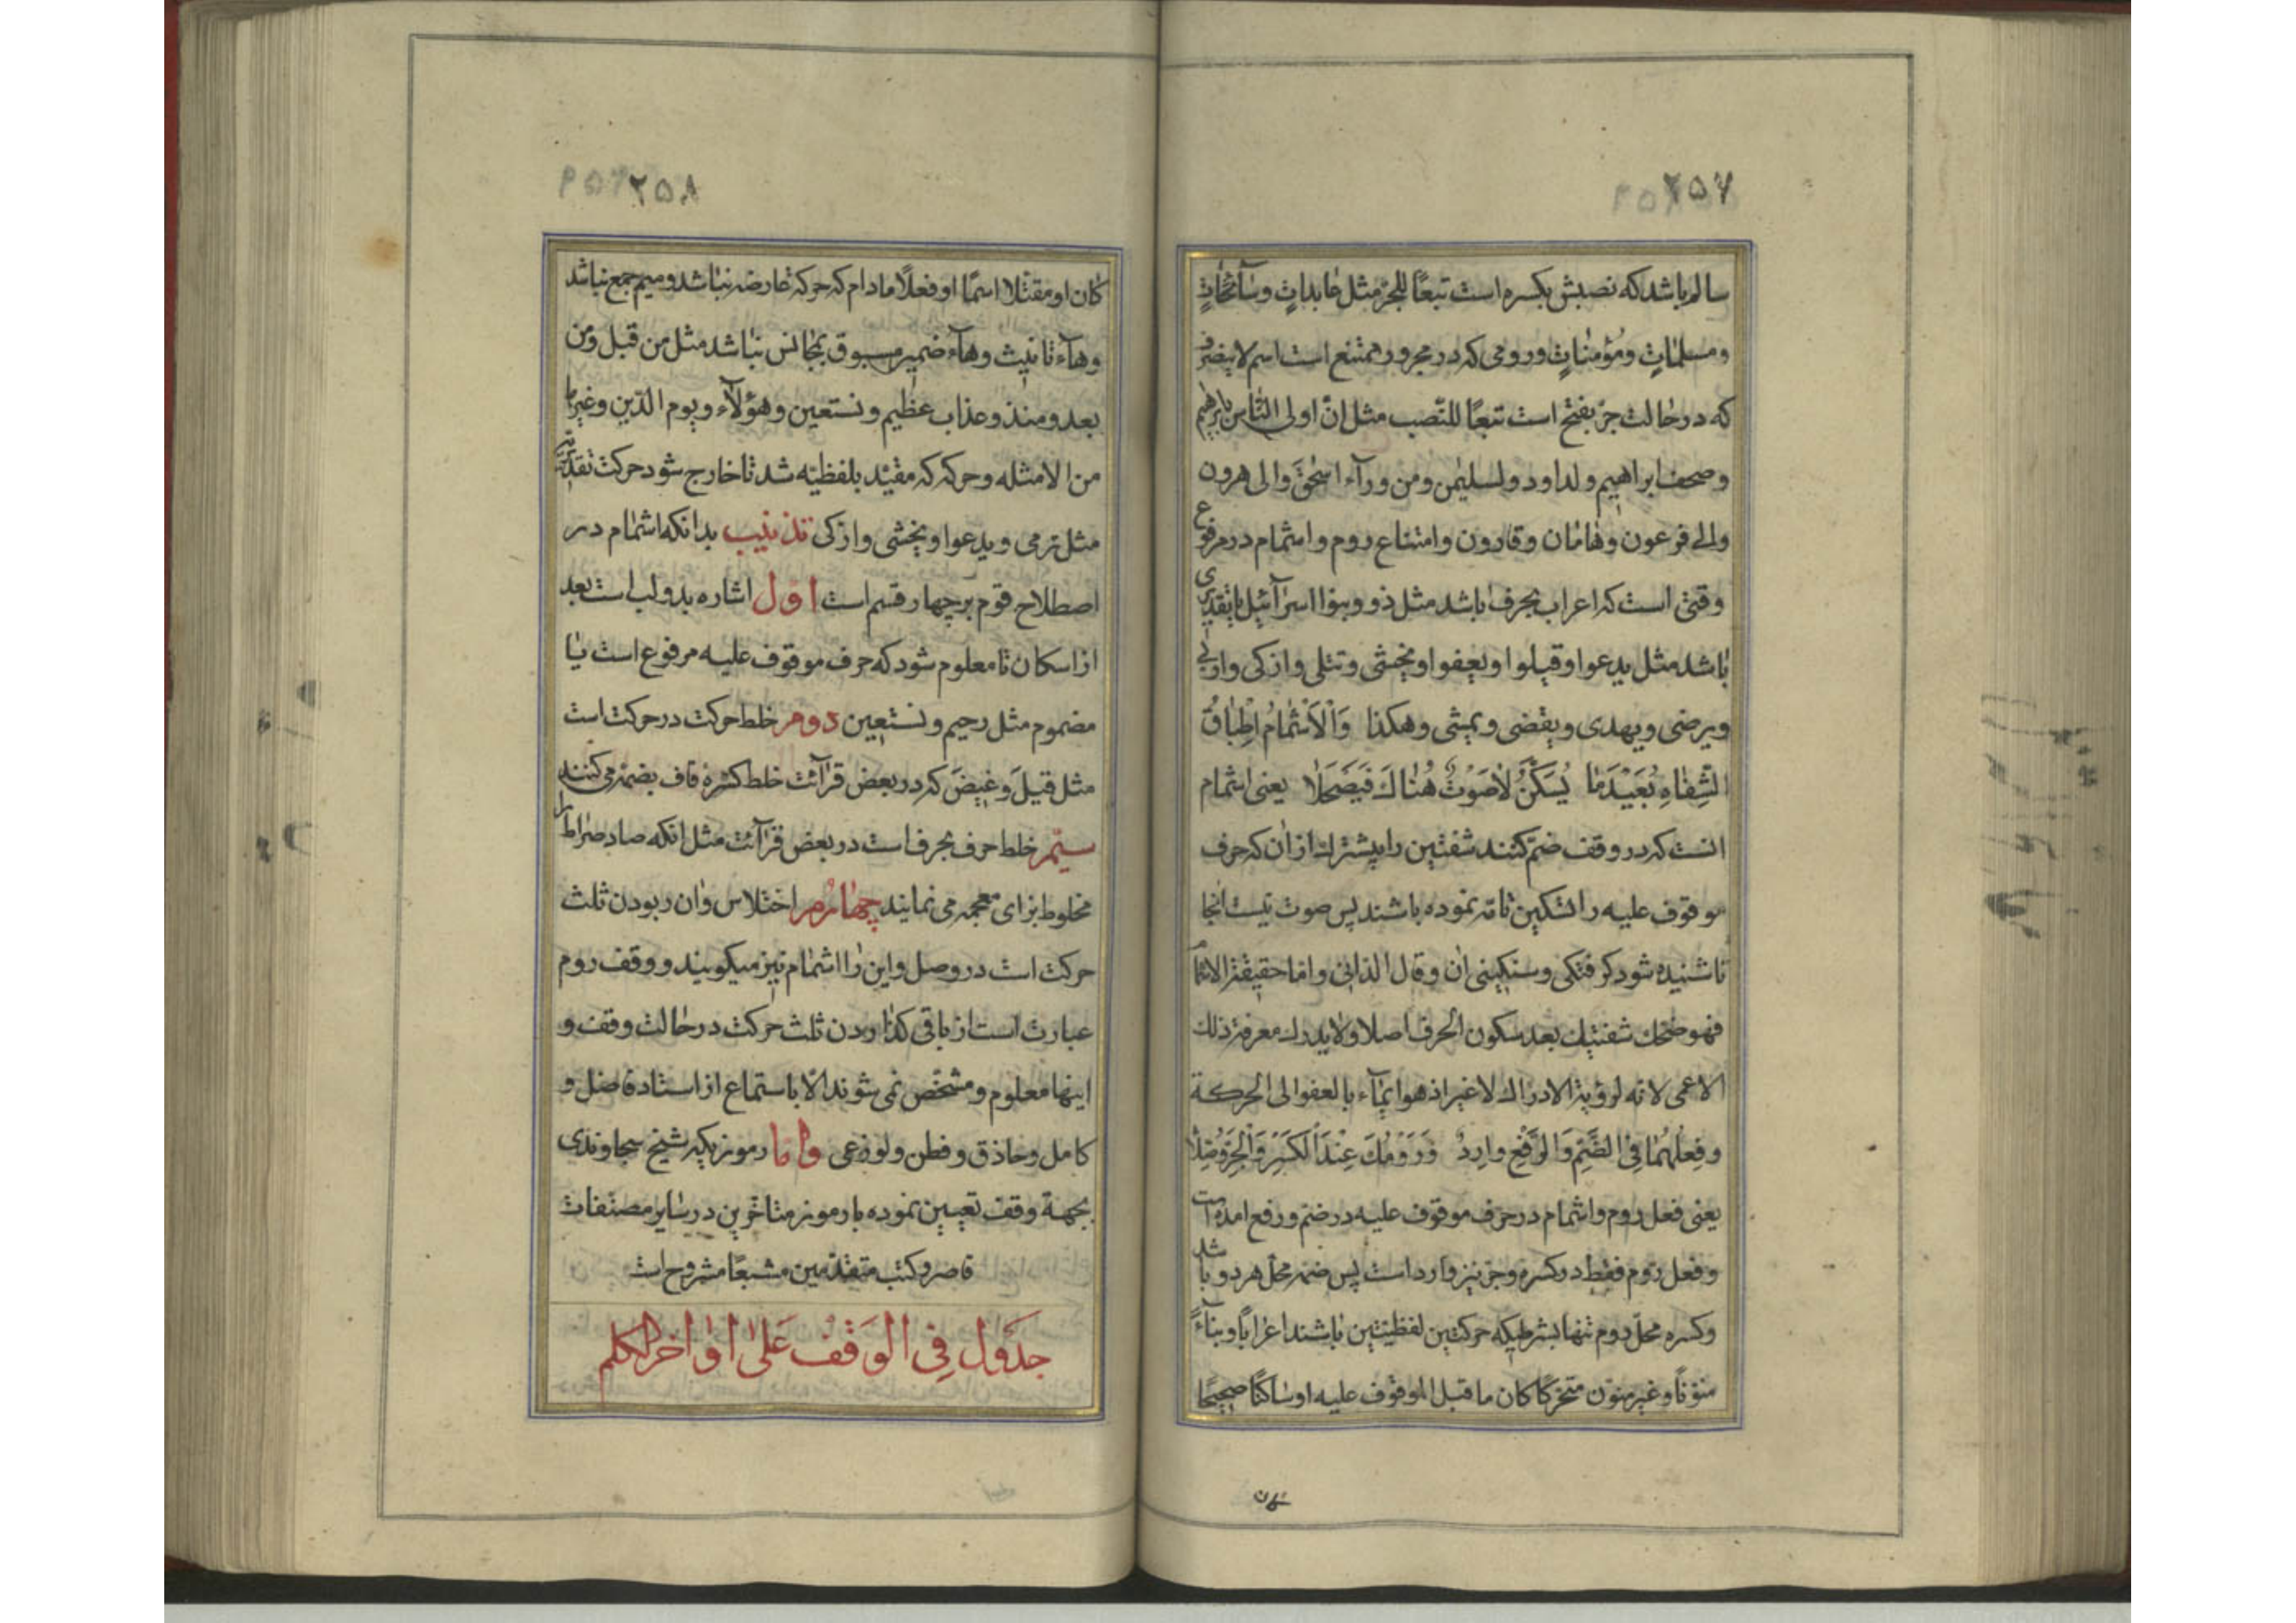 ۲۵۷
سالم باشد که نصبش بکسره است تبعًا للجرّ مثل عابداتٍ وسآئحاتٍ
ومسلماتٍ ومُؤمناتٍ ورومی که در مجرور ممتنع است اسم لا ینصرف
که در حالت جرّ بفتح است تبعًا للنّصب مثل انّ اولی النّاس بابرهیم
وصحف ابراهیم ولداود ولسلیمن ومن ورآء اسحٰقَ والی هرون
والی فرعون وهامان وقارون وامتناع روم واشمام در مرفوع
وقتی است که اعراب بحرف باشد مثل ذو وبنوا اسرآئیل یا بتقدیری
باشد مثل یدعوا وقیلوا ویعفوا ویخشی وتتلی وازکی واوتی
ویرضی ویهدی ویقضی ویمشی وهکذا وَالْاِشْمَامُ اِطْبَاقُ
الشِّفَاهِ بُعَیْدَمَا یُسَکَّنُ لَاصَوْتٌ هُنَاكَ فَیَصْحَلَا یعنی اشمام
انست که در وقف ضمّ کنند شفتین را پیشترك از ان که حرف
موقوف علیه را تسکین تامّه نموده باشند پس صوت نیست انجا
تا شنیده شود گرفتگی وسنگینی ان وقال الدانی وامّا حقیقة الاشمام
فهو ضمّك شفتیك بعد سکون الحرف اصلا ولا یدرك معرفة ذلك
الاعمی لانّه لرؤیة الادراك لا غیر اذ هو ایمآء بالعضو الی الحرکة
وفِعْلُهُمَا فِی الضَّمِّ وَالرَّفْعِ وارِدٌ وَرَوْمُكَ عِنْدَالْکَسْرِ وَالْجَرِّ وُصِّلَا
یعنی فعل روم واشمام در حرف موقوف علیه در ضمّ ورفع امده است
وفعل روم فقط در کسره وجرّ نیز وارد است پس ضمّه محلّ هر دو باشد
وکسره محلّ روم تنها بشرطیکه حرکتین لفظیتین باشند اعرابًا وبنآءً
منوّنًا وغیر منوّن متحرّکًا کان ما قبل الموقوف علیه او ساکنًا صحیحًا
کان
۲۵۸
کان او معتلا اسمًا او فعلًا مادام که حرکه عارضه نباشد ومیم جمع نباشد
وهآء تانیث وهآء ضمیر مسبوق بمجانس نباشد مثل من قبل ومن
بعد ومنذ وعذاب عظیم ونستعین وهؤلآء ویوم الدّین وغیرها
من الامثله وحرکه که مقیّد بلفظیّه شد تا خارج شود حرکت تقدیریّه
مثل ترمی ویدعوا ویخشی وازکی تذنیب بدانکه اشمام در
اصطلاح قوم بر چهار قسم است اوّل اشاره بدو لب است بعد
از اسکان تا معلوم شود که حرف موقوف علیه مرفوع است یا
مضموم مثل رحیم ونستعین دوم خلط حرکت در حرکت است
مثل قیلَ وغیضَ که در بعض قرآئت خلط کسره قاف بضمّه می کنند
سیّم خلط حرف بحرف است در بعض قرآئت مثل انکه صاد صراط را
مخلوط بزای معجمه می نمایند چهارم اختلاس وان ربودن ثلث
حرکت است در وصل واین را اشمام نیز میگویند ووقف روم
عبارت است از باقی گذاردن ثلث حرکت در حالت وقف و
اینها معلوم ومشخّص نمی شوند الّا باستماع از استاد فاضل و
کامل وحاذق وفطن ولوذعی وامّا رموزیکه شیخ سجاوندی
بجهة وقف تعیین نموده با رموز متاخّرین در سایر مصنّفات
قاصر وکتب متقدّمین مشبعًا مشروح است
جدول فی الوَقْف عَلیٰ اَواخر الکلم